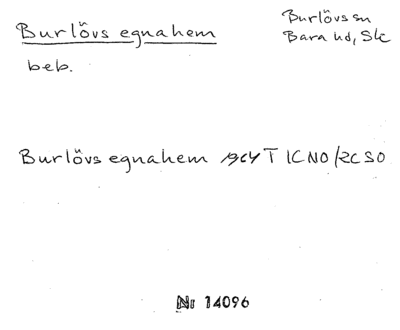 Burlövs egnahem
Burlövs sn
Bara hd, Sk
beb.
Burlövs egnahem 1964 T 1C NO/2C SO
Nr 14096